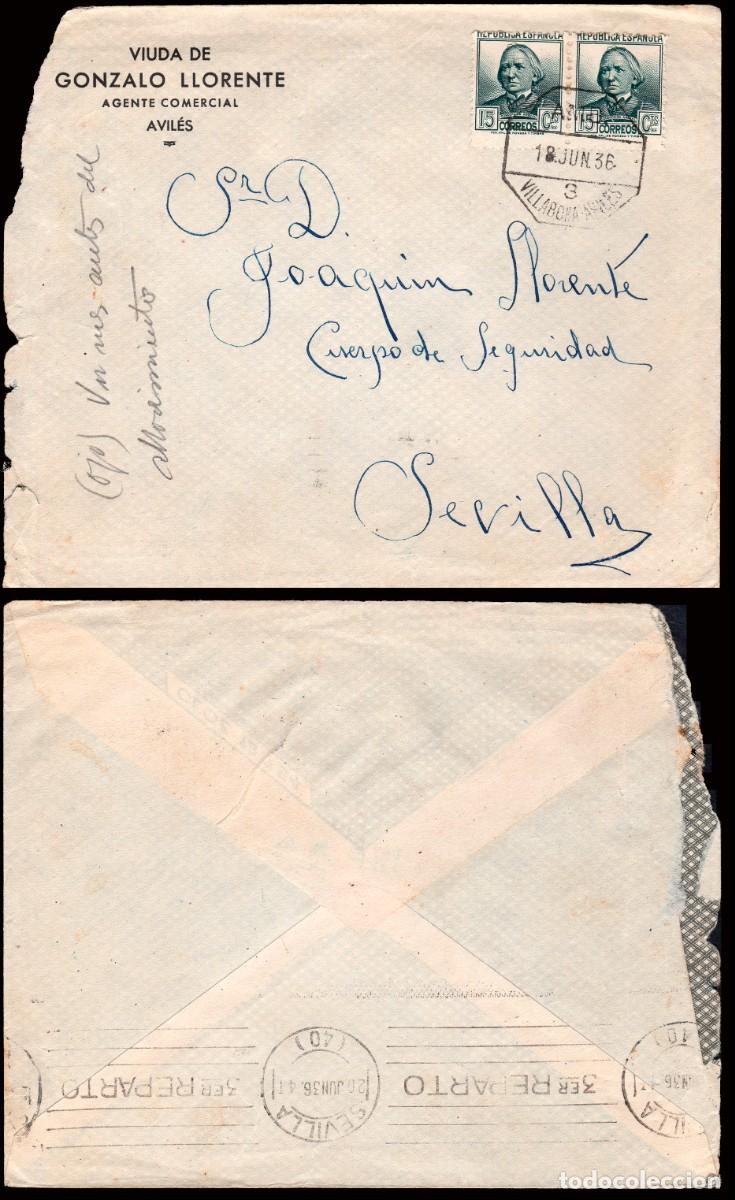 VIUDA DE
GONZALO LLORENTE
AGENTE COMERCIAL
AVILÉS
REPUBLICA ESPAÑOLA
15 CORREOS Cts
REPUBLICA ESPAÑOLA
15 CORREOS Cts
18 JUN.36
3
VILLABONA-AVILÉS
Sr D.
Joaquin Llorente
Cuerpo de Seguridad
Sevilla
(ojo) Un mes antes del
Movimiento
3ER REPARTO
SEVILLA
20 JUN36.4T
(40)
3ER REPARTO
SEVILLA
todocoleccion